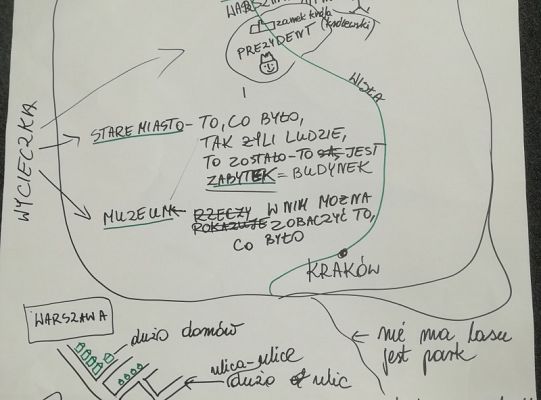 zamek króla (królewski)
PREZYDENT
WISŁA
WYCIECZKA
STARE MIASTO - TO, CO BYŁO,
TAK ŻYLI LUDZIE,
TO ZOSTAŁO - TO SĄ JEST
ZABYTEK = BUDYNEK
MUZEUM RZECZY W NIM MOŻNA
POKAZUJE ZOBACZYĆ TO,
CO BYŁO
KRAKÓW
WARSZAWA
dużo domów
ulica-ulice
dużo ulic
nie ma lasu
jest park